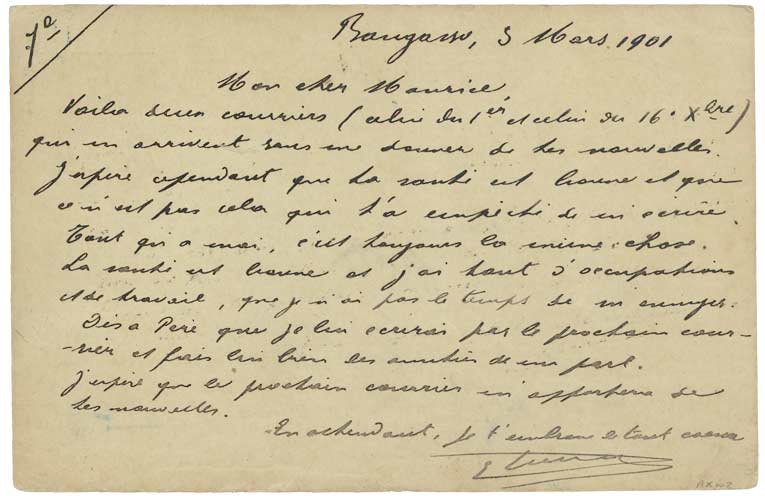 7°
Bangasso, 3 Mars 1901
Mon cher Maurice
Voila deux courriers (celui du 1er et celui du 16° Xbre)
qui m arrivent sans me donner de tes nouvelles.
J'espère cependant que ta santé est bonne et que
ce n'est pas cela qui t'a empêché de m'écrire.
Tant qu'a moi, c'est toujours la même chose.
La santé est bonne et j'ai tant d'occupations
et de travail, que je n'ai pas le temps de m ennuyer.
Dis a Père que je lui ecrirai par le prochain cour-
-rier et fais lui bien des amitiés de ma part.
J'espère que le prochain courrier m'apportera de
tes nouvelles.
En attendant, je t'embrasse de tout coeur